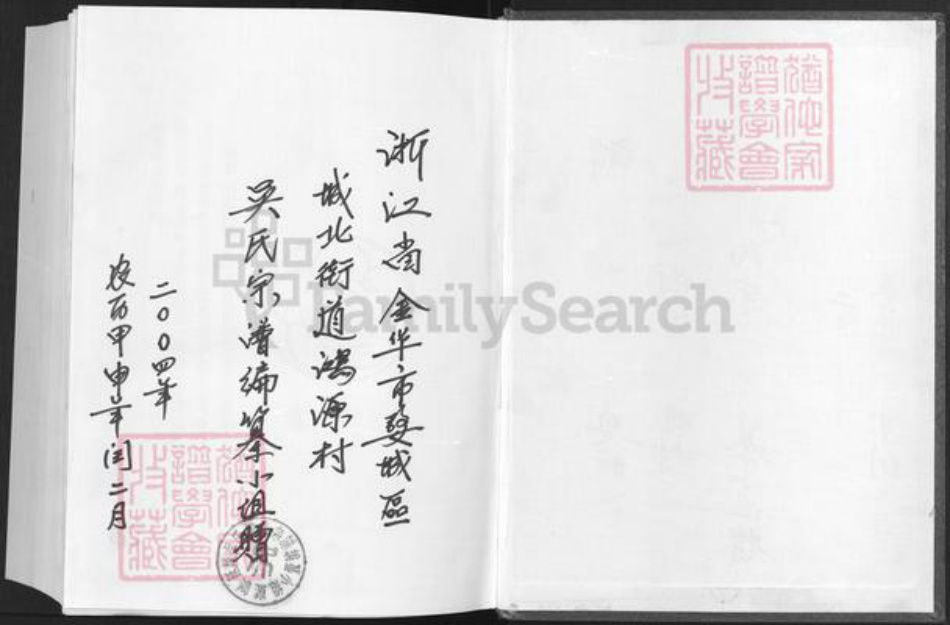 浙江省金华市婺城區
城北街道鴻源村
吴氏宗谱编纂小组贈
二〇〇四年
农历甲申年闰二月
猶他家
譜學會
收藏
猶他家
譜學會
收藏
FamilySearch